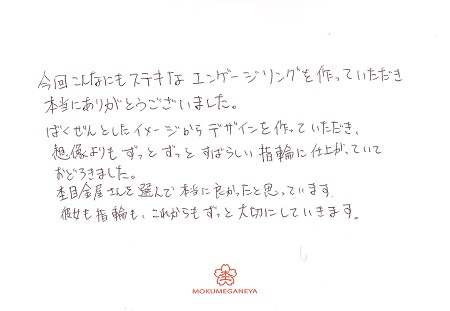 今回こんなにもステキな エンゲージリングを作っていただき
本当にありがとうございました。
ばくぜんとしたイメージから デザインを作っていただき、
想像よりも ずっと ずっと すばらしい 指輪に仕上がっていて
おどろきました。
杢目金屋さんを選んで 本当に良かったと思っています
彼女も指輪も、これからもずっと大切にしていきます。
杢
MOKUMEGANEYA